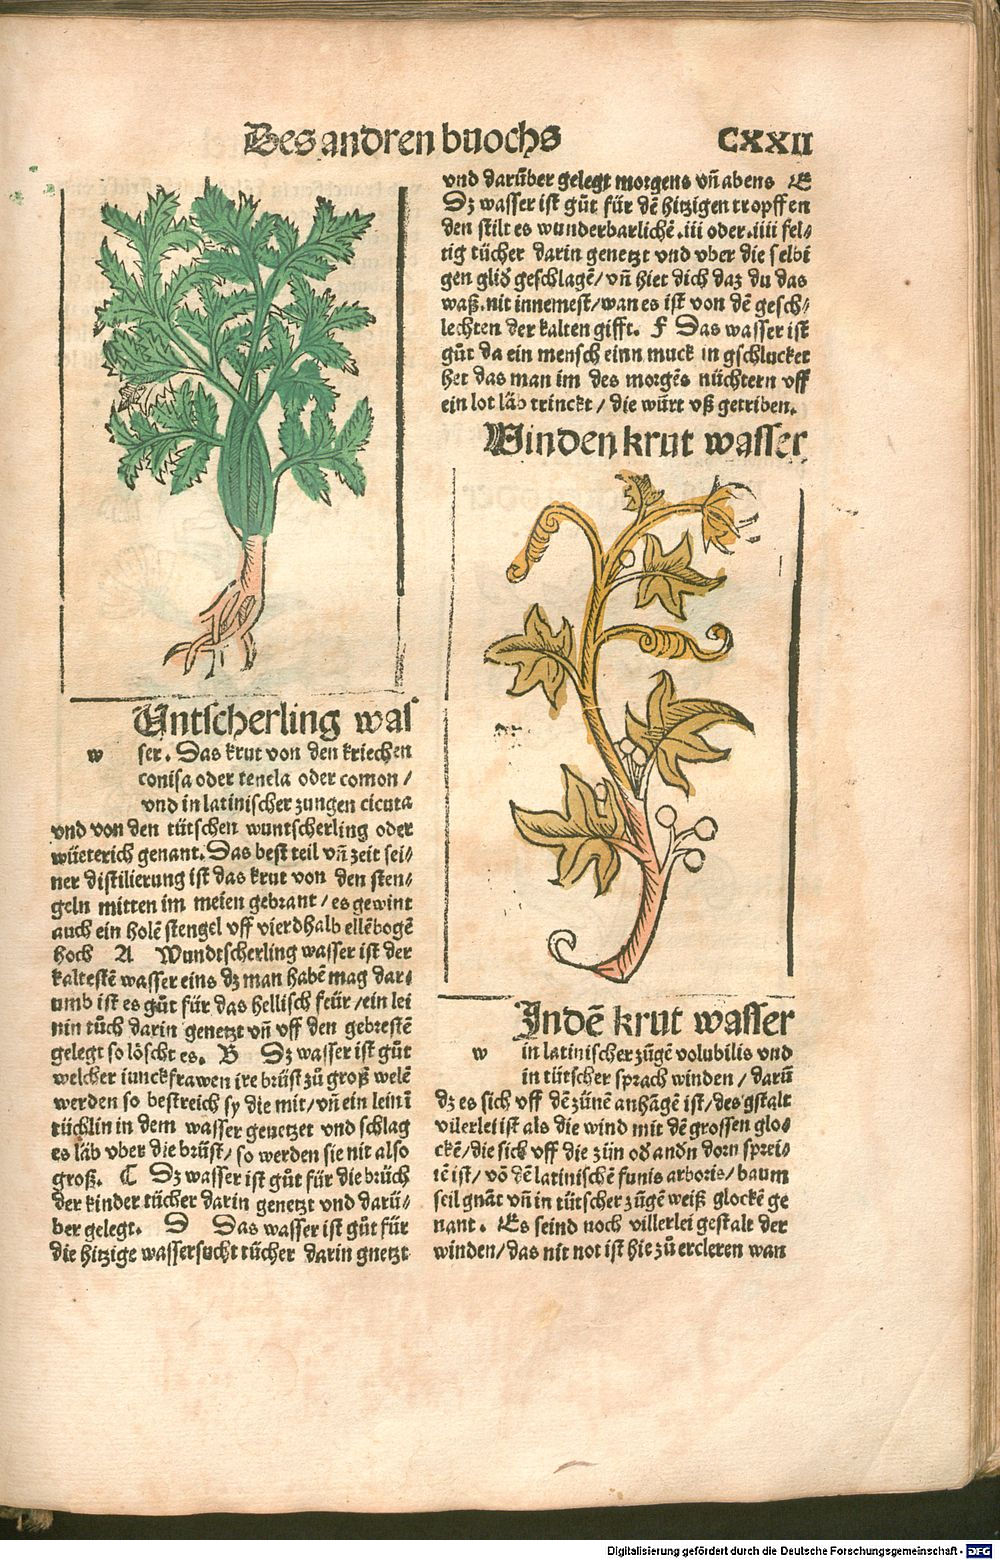 Des andren buochs
CXXII
Untscherling was
w
ser. Das krut von den kriechen
conisa oder tenela oder comon /
vnd in latinischer zungen cicuta
vnd von den tütschen wuntscherling oder
wüeterich genant. Das best teil vñ zeit sei⸗
ner distilierung ist das krut von den sten⸗
geln mitten im meien gebrant / es gewint
auch ein holē stengel vff vierdhalb ellēbogē
hoch A Wundtscherling wasser ist der
kaltestē wasser eins dz man habē mag dar⸗
umb ist es gůt für das hellisch feür / ein lei
nin tůch darin genetzt vñ vff den gebrestē
gelegt so löscht es. B Dz wasser ist gůt
welcher iunckfrawen ire brüst zů groß welē
werden so bestreich sy die mit / vñ ein leinī
tüchlin in dem wasser genetzet vnd schlag
es läb vber die brüst / so werden sie nit also
groß. C Dz wasser ist gůt für die brüch
der kinder tücher darin genetzt vnd darü⸗
ber gelegt. D Das wasser ist gůt für
die hitzige wassersucht tücher darin gnetzt
vnd darüber gelegt morgens vñ abens E
Dz wasser ist gůt für dē hitzigen tropffen
den stilt es wunderbarlichē .iii oder .iiii fel⸗
tig tücher darin genetzt vnd vber die selbi
gen glid geschlagē / vñ hiet dich daz du das
waß. nit innemest / wan es ist von dē gesch⸗
lechten der kalten gifft. F Das wasser ist
gůt da ein mensch einn muck in gschlucket
het das man im des morgēs nüchtern vff
ein lot läb trinckt / die würt vß getriben.
Winden krut wasser
Indē krut wasser
w
in latinischer zūgē volubilis vnd
in tütscher sprach winden / darū
dz es sich vff dē zünē anhāgē ist / des gstalt
vilerlei ist als die wind mit dē grossen glo⸗
ckē / die sich vff die zün od andn dorn sprei⸗
tē ist / vō dē latinischē funis arboris / baum
seil gnāt vñ in tütscher zūgē weiß glockē ge
nant. Es seind noch villerlei gestalt der
winden / das nit not ist hie zů ercleren wan
Digitalisierung gefördert durch die Deutsche Forschungsgemeinschaft - DFG